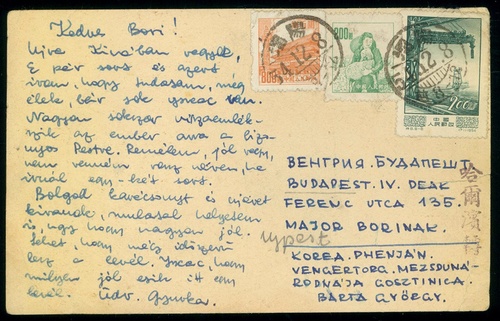 Kedves Bori!
Újra Kínában vagyok,
E pár sort is azért
írom, hogy tudassam, még
élek, bár sok igaz van.
Nagyon sokszor visszaemlék-
szik az ember arra a bizo-
nyos Pestre. Remélem, jól vagy,
nem vennéd nagy néven, ha
írnál egy-két sort.
Boldog karácsonyt és újévet
kívánok, mulass helyettem
is, úgy hogy nagyon jól.
Lehet, hogy még időszerű
lesz a levél. Igaz, hogy
milyen jól esik itt egy
levél. Üdv. Gyurka.
800
200
54.12.8
12.8
200
中國
人民郵政
ВЕНГРИЯ. БУДАПЕШТ
BUDAPEST. IV. DEÁK
FERENC UTCA 135.
MAJOR BORINAK.
Ujpest
哈爾濱
KOREA. PHENJÁN.
VENGERTORG. MEZSDUNA-
RODNAJA GOSZTINICA.
BARTA GYÖRGY.